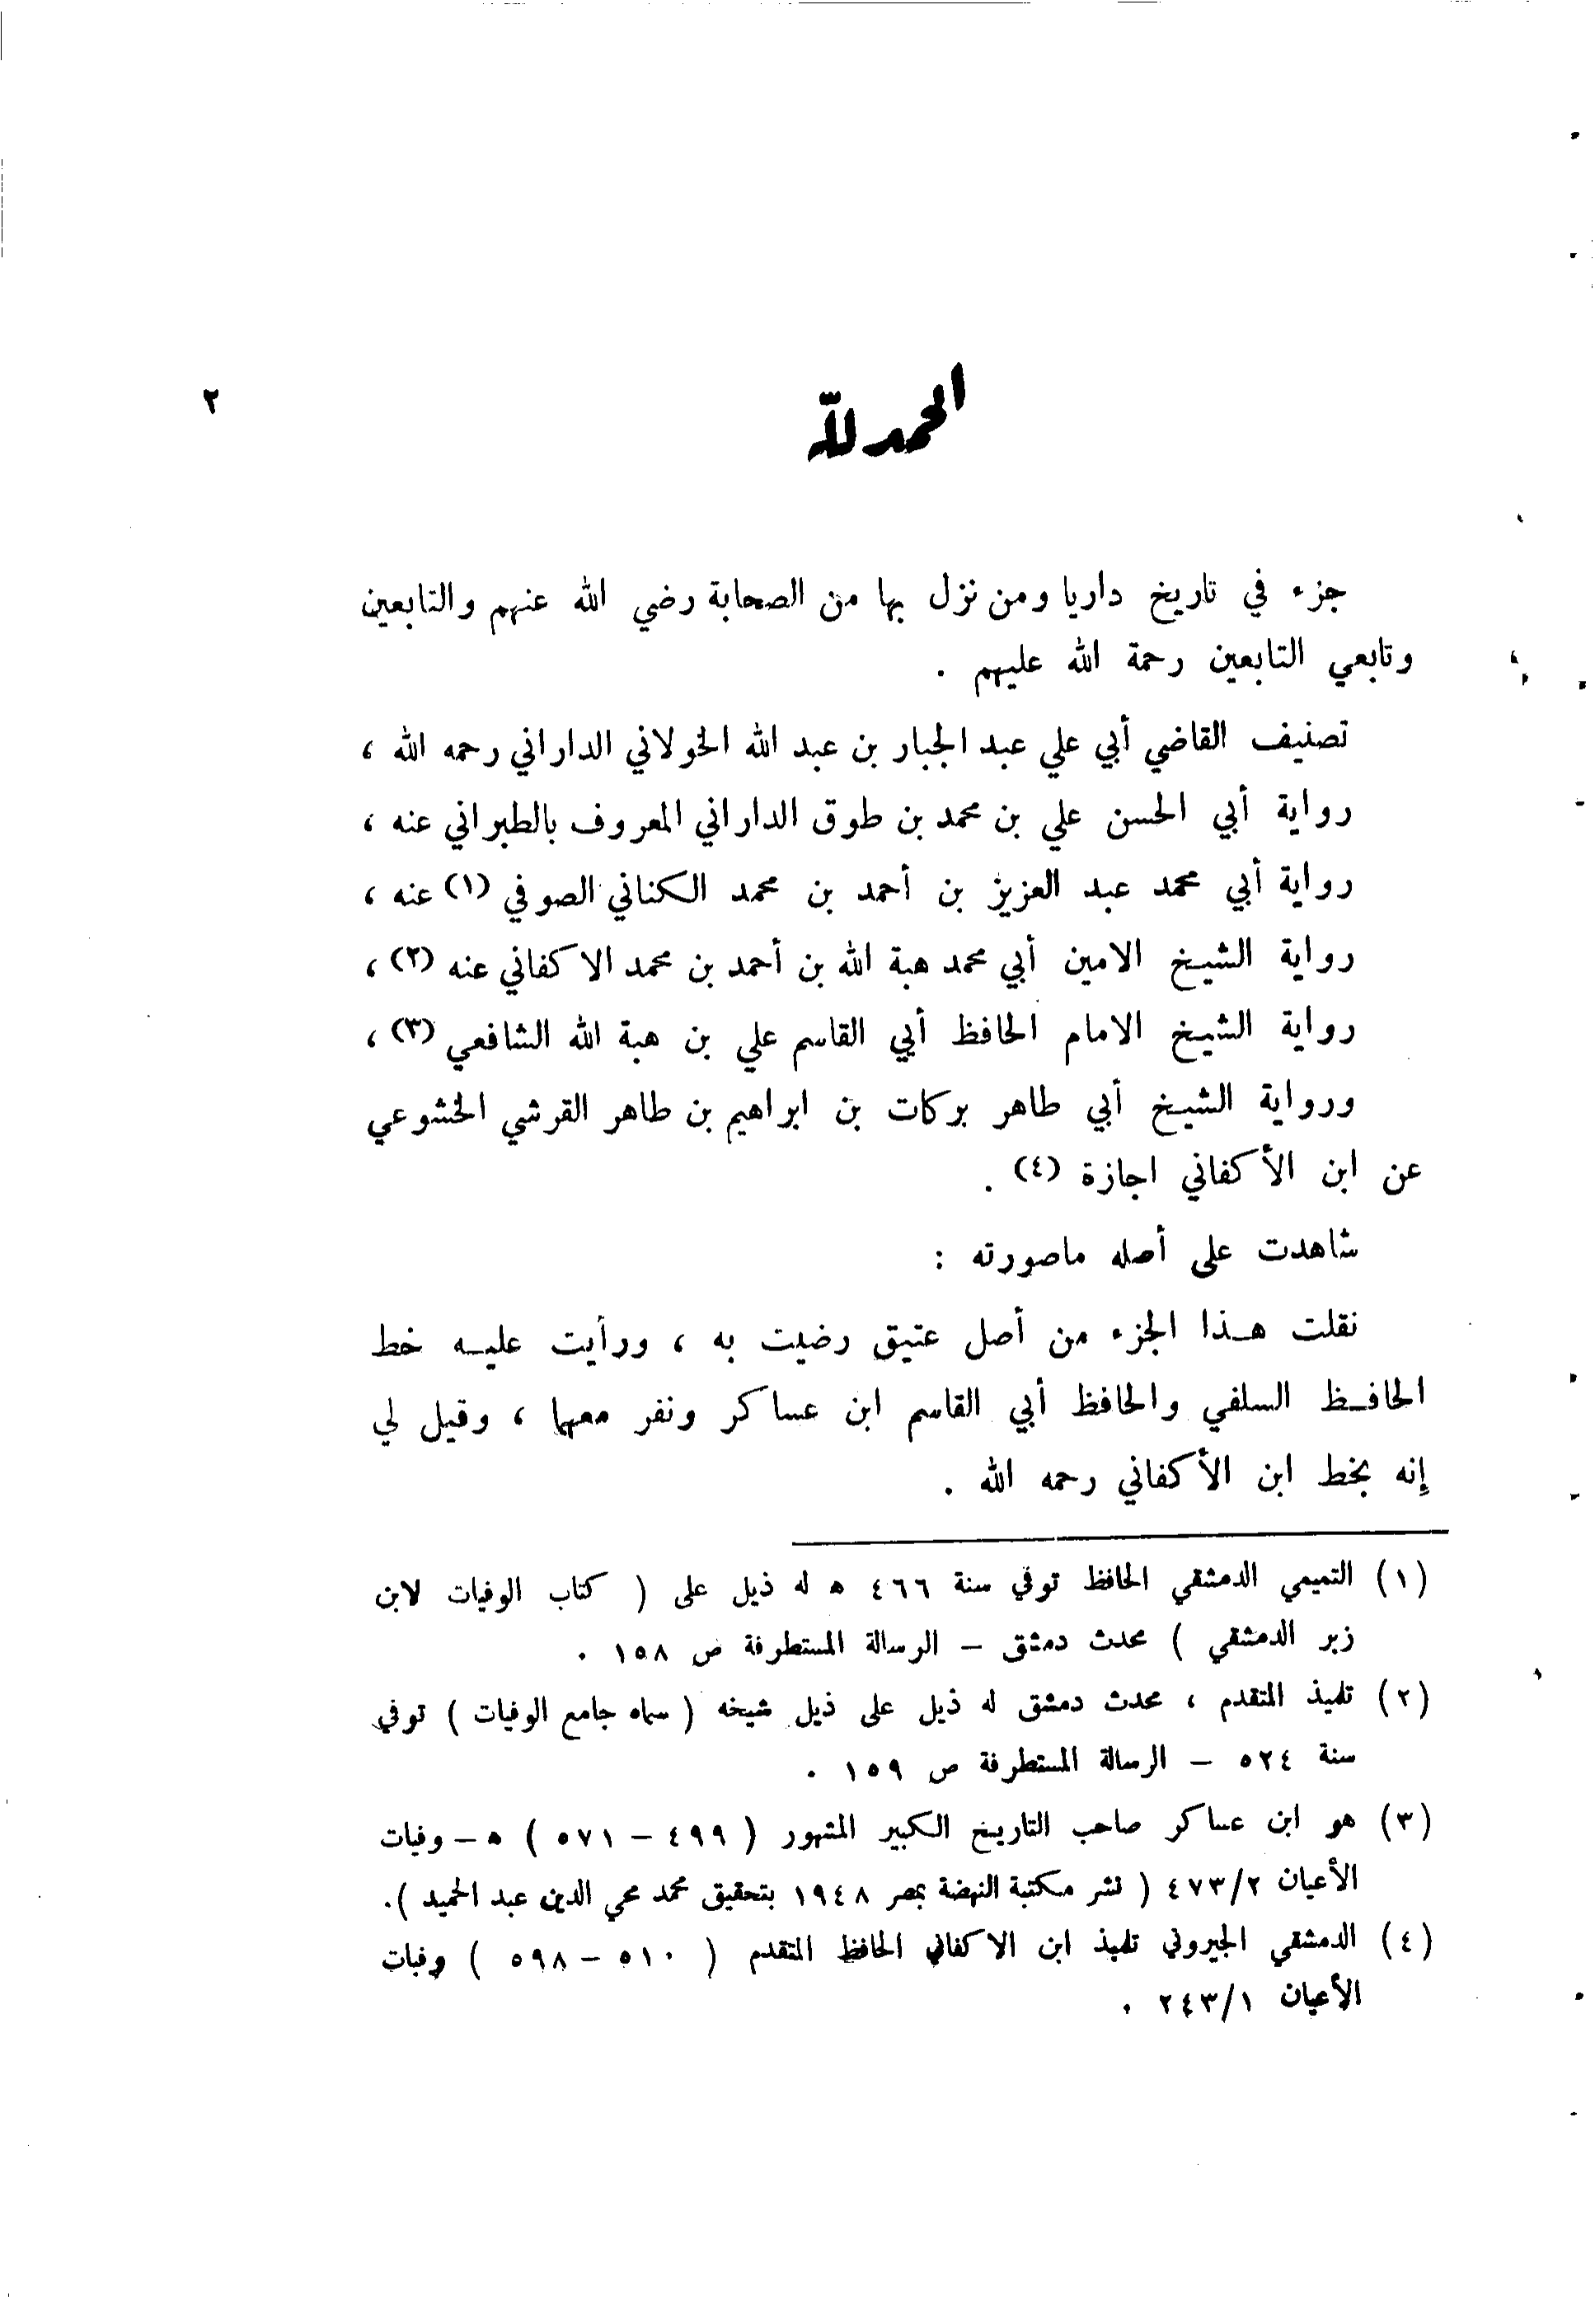 ٢
الحمد لله
جزء في تاريخ داريا ومن نزل بها من الصحابة رضي الله عنهم والتابعين
وتابعي التابعين رحمة الله عليهم .
تصنيف القاضي أبي علي عبد الجبار بن عبد الله الخولاني الداراني رحمه الله ،
رواية أبي الحسن علي بن محمد بن طوق الداراني المعروف بالطبراني عنه ،
رواية أبي محمد عبد العزيز بن أحمد بن محمد الكناني الصوفي (١) عنه ،
رواية الشيخ الامين أبي محمد هبة الله بن أحمد بن محمد الاكفاني عنه (٢) ،
رواية الشيخ الامام الحافظ أبي القاسم علي بن هبة الله الشافعي (٣) ،
ورواية الشيخ أبي طاهر بركات بن ابراهيم بن طاهر القرشي الخشوعي
عن ابن الأكفاني اجازة (٤) .
شاهدت على أصله ماصورته :
نقلت هـذا الجزء من أصل عتيق رضيت به ، ورأيت عليـه خط
الحافـظ السلفي والحافظ أبي القاسم ابن عساكر ونفر معهما ، وقيل لي
إنه بخط ابن الأكفاني رحمه الله .
(١) التميمي الدمشقي الحافظ توفي سنة ٤٦٦ ه له ذيل على ( كتاب الوفيات لابن
زبر الدمشقي ) محدث دمشق – الرسالة المستطرفة ص ١٥٨ .
(٢) تلميذ المتقدم ، محدث دمشق له ذيل على ذيل شيخه ( سماه جامع الوفيات ) توفي
سنة ٥٢٤ – الرسالة المستطرفة ص ١٥٩ .
(٣) هو ابن عساكر صاحب التاريخ الكبير المشهور ( ٤٩٩ – ٥٧١ ) ه – وفيات
الأعيان ٤٧٣/٢ ( نشر مكتبة النهضة بمصر ١٩٤٨ بتحقيق محمد محي الدين عبد الحميد ).
(٤) الدمشقي الجيروني تلميذ ابن الاكفاني الحافظ المتقدم ( ٥١٠ – ٥٩٨ ) وفيات
الأعيان ٢٤٣/١ .